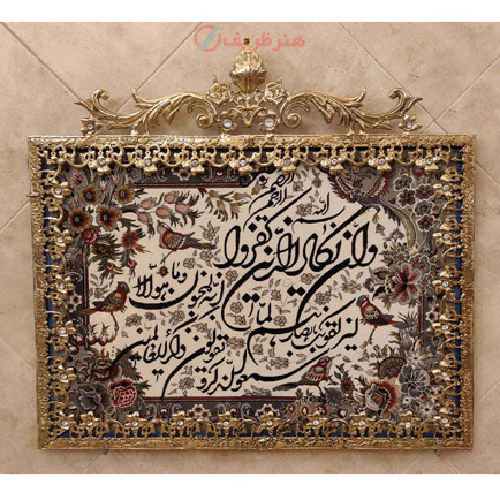 هنر ظریف
بسم الله الرحمن الرحیم
وان یکاد الذین کفروا
لیزلقونک بابصارهم لما
سمعوا الذکر و یقولون
انه لمجنون وما هو الا
ذکر للعالمین